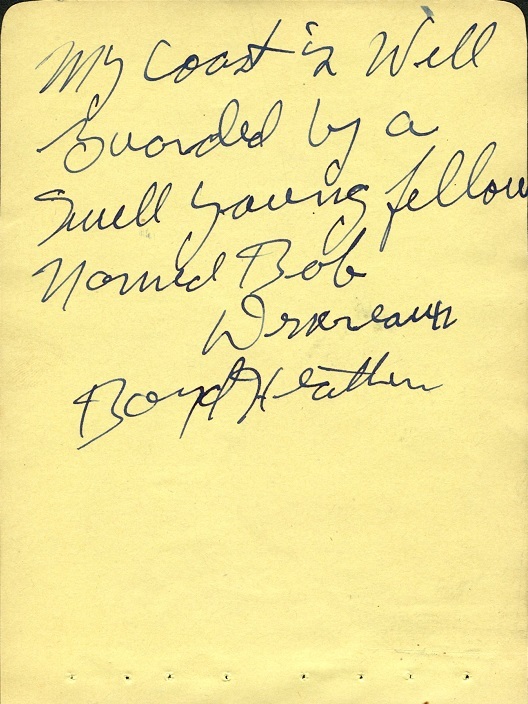 My Coast is Well
Guarded by a
Swell young fellow
Named Bob
Boyd Heathen